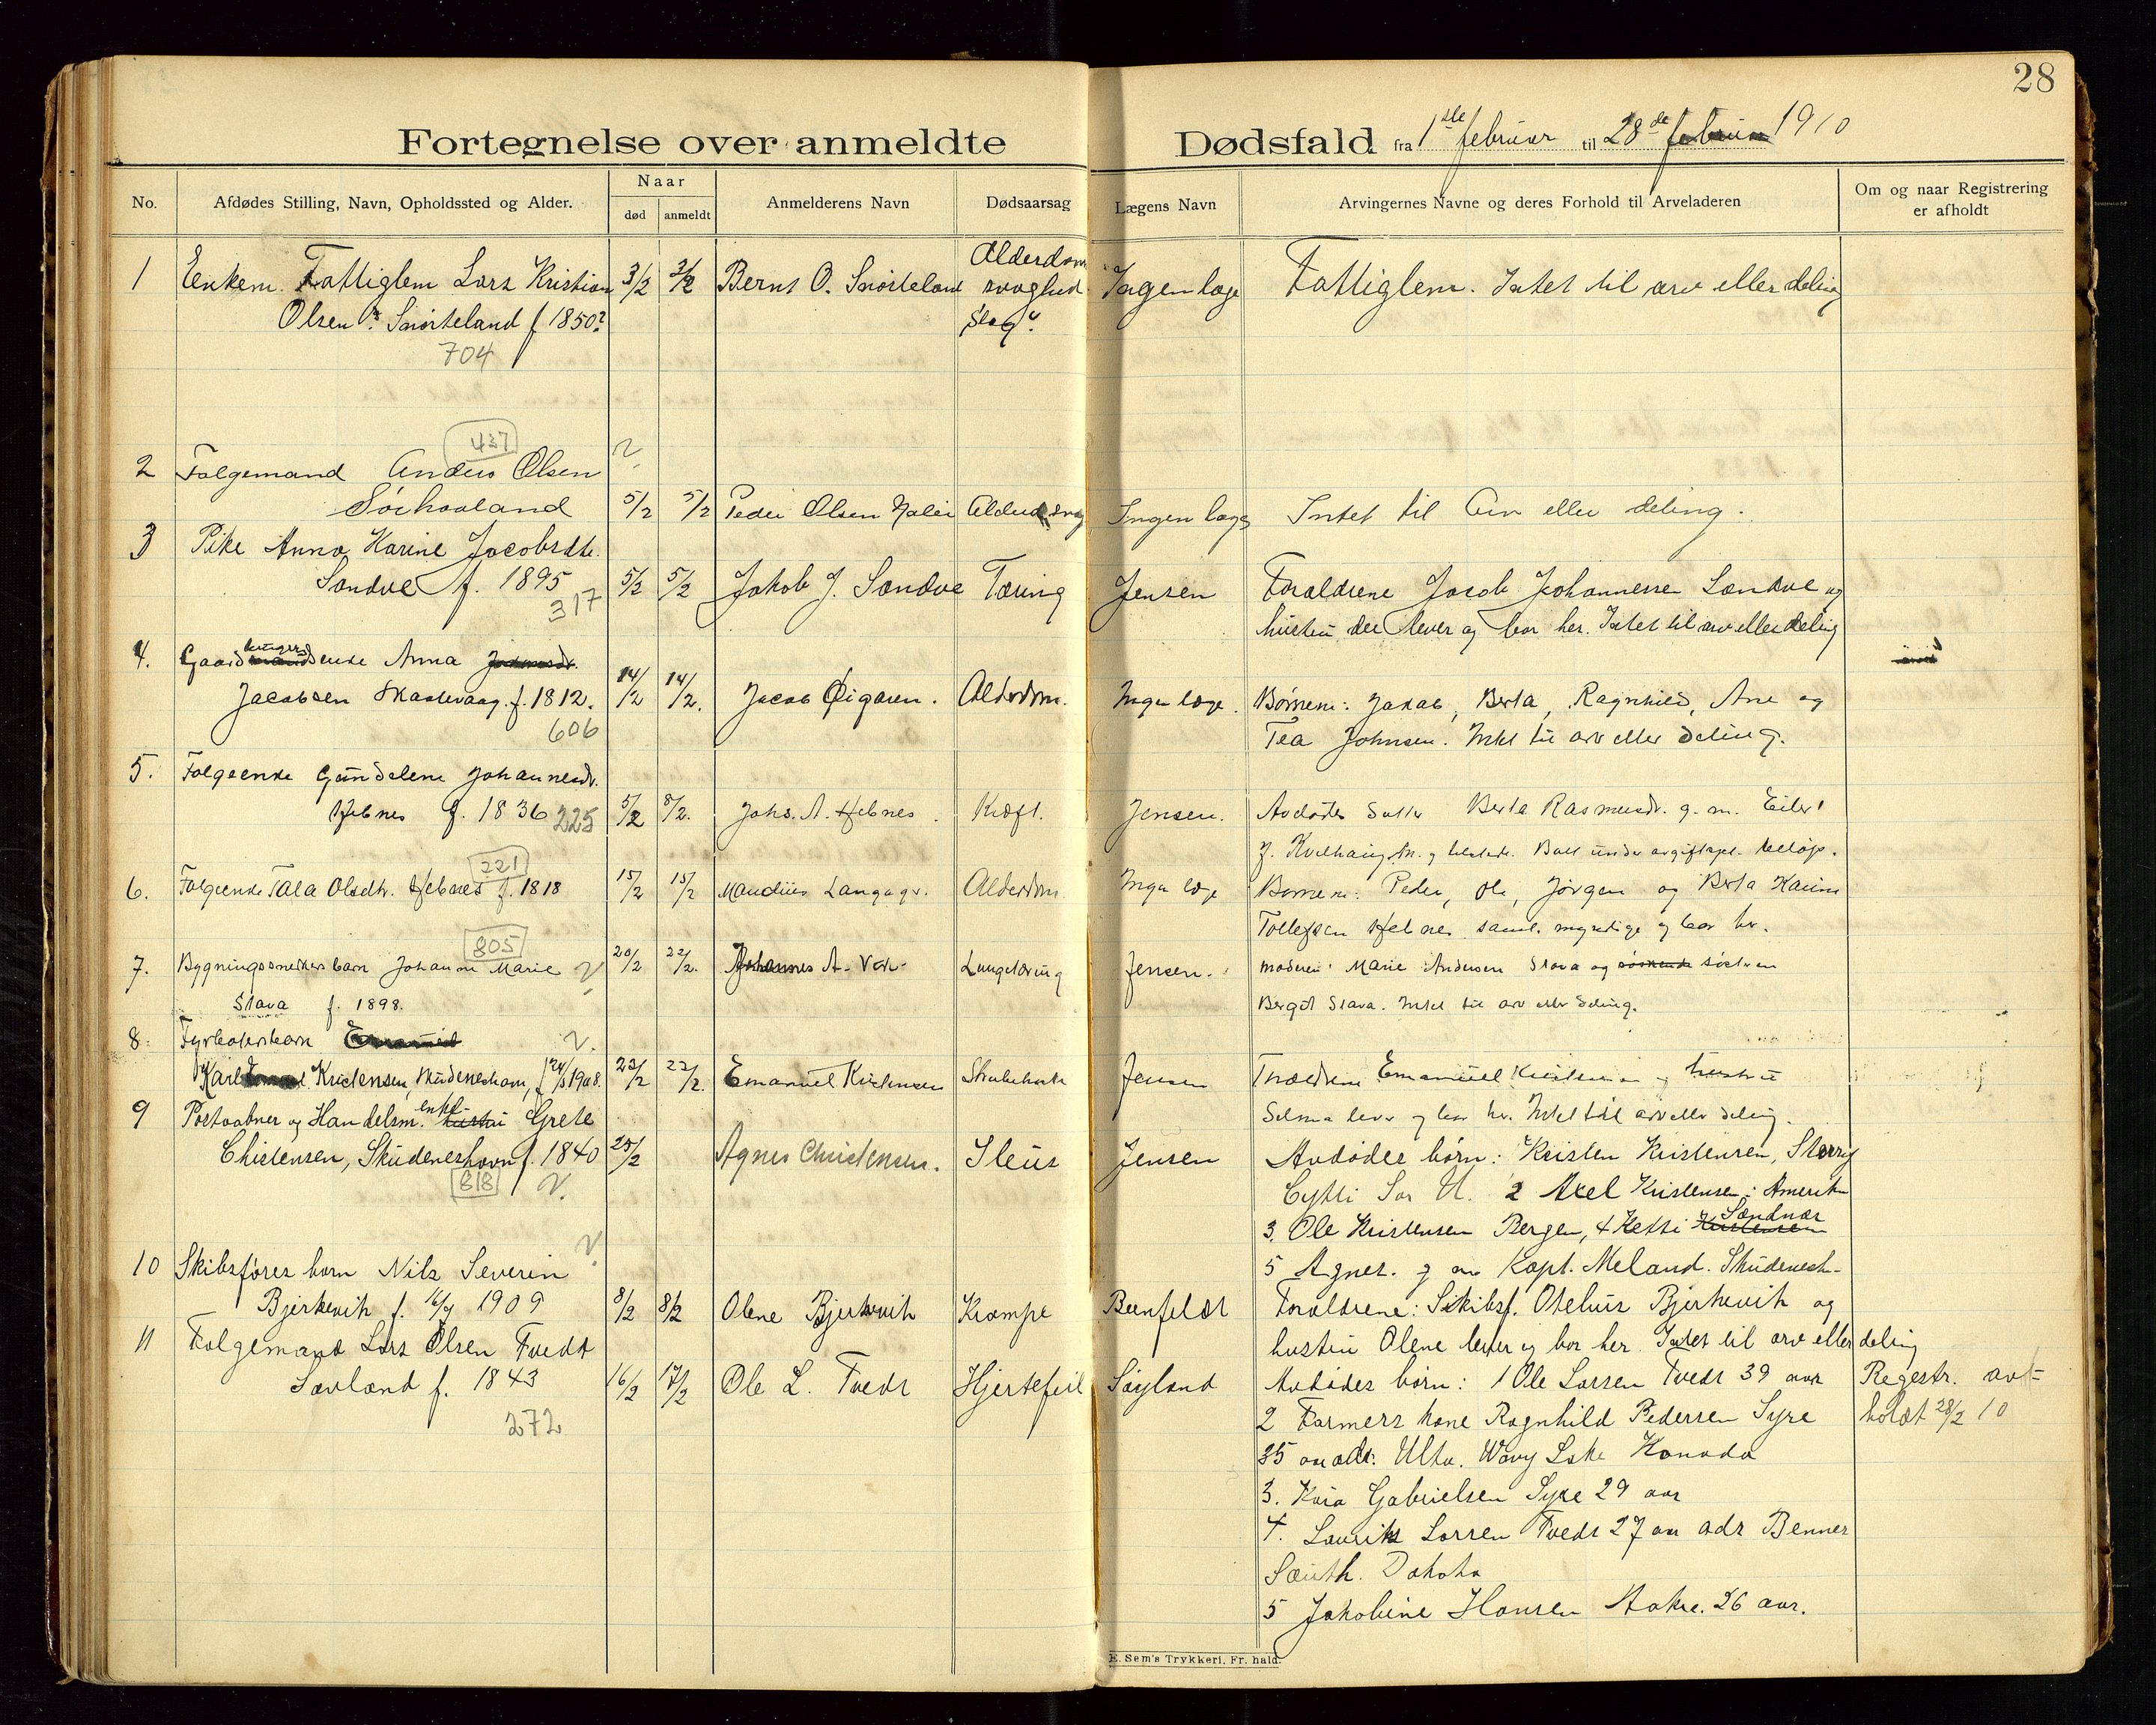 28
Fortegnelse over anmeldte Dødsfald fra 1ste februar til 28de februar 1910
No.
Afdødes Stilling, Navn, Opholdssted og Alder.
Naar
død
anmeldt
Anmelderens Navn
Dødsaarsag
Lægens Navn
Arvingernes Navne og deres Forhold til Arveladeren
Om og naar Registrering
er afholdt
1 Enkem. Fattiglem Lars Kristian 3/2 3/2 Bernt O. Snørteland Alderdom Ingen læge Fattiglem. Intet til arv eller deling
svaghed
Olsen Snørteland f 1850?
Slag
704
437
2 Folgemand Anders Olsen
Sørhaaland 5/2 5/2 Peder Olsen Ingen læge Intet til Arv eller deling.
3 Pike Anna Karine Jacobsdtr.
Sandve f. 1895 5/2 5/2 Jakob J. Sandve Tæring Jensen Forældrene Jacob Johannessen Sandve og
317
hustru der lever og bor her. Intet til arv eller deling
4. Gaardbrugerenke Anna
Jacobsen f. 1812. 14/2 14/2. Jacob Øigaren. Alderdom. Ingen læge. Børnene: Jakob, Berta, Ragnhild, Ane og
606
Tea Johnsen. Intet til arv eller deling.
5. Folgeenke Gundelene Johannesdr.
Hebnes f. 1836 225 5/2 8/2. Johs. A. Hebnes Kræft. Jensen. Avdødes Berta Rasmusdr. g. m. Eilert
J. under beløp.
221
6. Folgeenke Tala Olsdtr. Hebnes f. 1818 15/2 15/2 Alderdom Ingen læge Børnene: Peder, Ole, Jørgen og Berta Karine
Tollefsen Hebnes saml. myndige og bor her.
805
7. Bygningssnekkers barn Johanne Marie 20/2 22/2. Johannes A. Lungetæring Jensen. moderen Marie Andersen Stava og søskende søsteren
Stava f. 1898.
Bergit Stava. Intet til arv eller deling.
8. Fyrbøters barn
Karl Kristensen, Skudeneshavn, f 1908. 22/2 22/2. Emanuel Kristensen Strubehoste Jensen Forældrene Emanuel Kristensen og hustru
Selma lever og bor her. Intet til arv eller deling.
9 Postaabner og Handelsm. hustru enke Grete
Christensen, Skudeneshavn f. 1840 25/2 Agnes Christensen. Ileus Jensen Avdødes børn: Kristen Kristensen,
818
2 Axel Kristensen: Amerika
3. Ole Kristensen Bergen, 4 Ketti Kristensen Sandnær
5 Agnes. g m Kapt. Meland. Skudenesh-
10 Skibsfører barn Nils Severin
Bjerkevik f. 1909 8/2 8/2 Olene Bjerkevik Krampe Forældrene: Skibsf. Otelius Bjerkevik og
hustru Olene lever og bor her. Intet til arv eller deling
11 Folgemand Lars Olsen Tvedt
Sævland f. 1843 16/2 17/2 Ole L. Tvedt Hjertefeil Søyland Avdødes børn: 1 Ole Larsen Tvedt 39 aar Regestr. avholdt 28/2 10
272
2 Farmers kone Ragnhild Pedersen Syre
35 aar adr. Wavy Lake Kanada
3. Gabrielsen Syre 29 aar
4. Laurits Larsen Tvedt 27 aar adr Benner
Sauth. Dakota
5 Jakobine Hansen Aakre. 26 aar.
E. Sem's Trykkeri. Fr. hald.